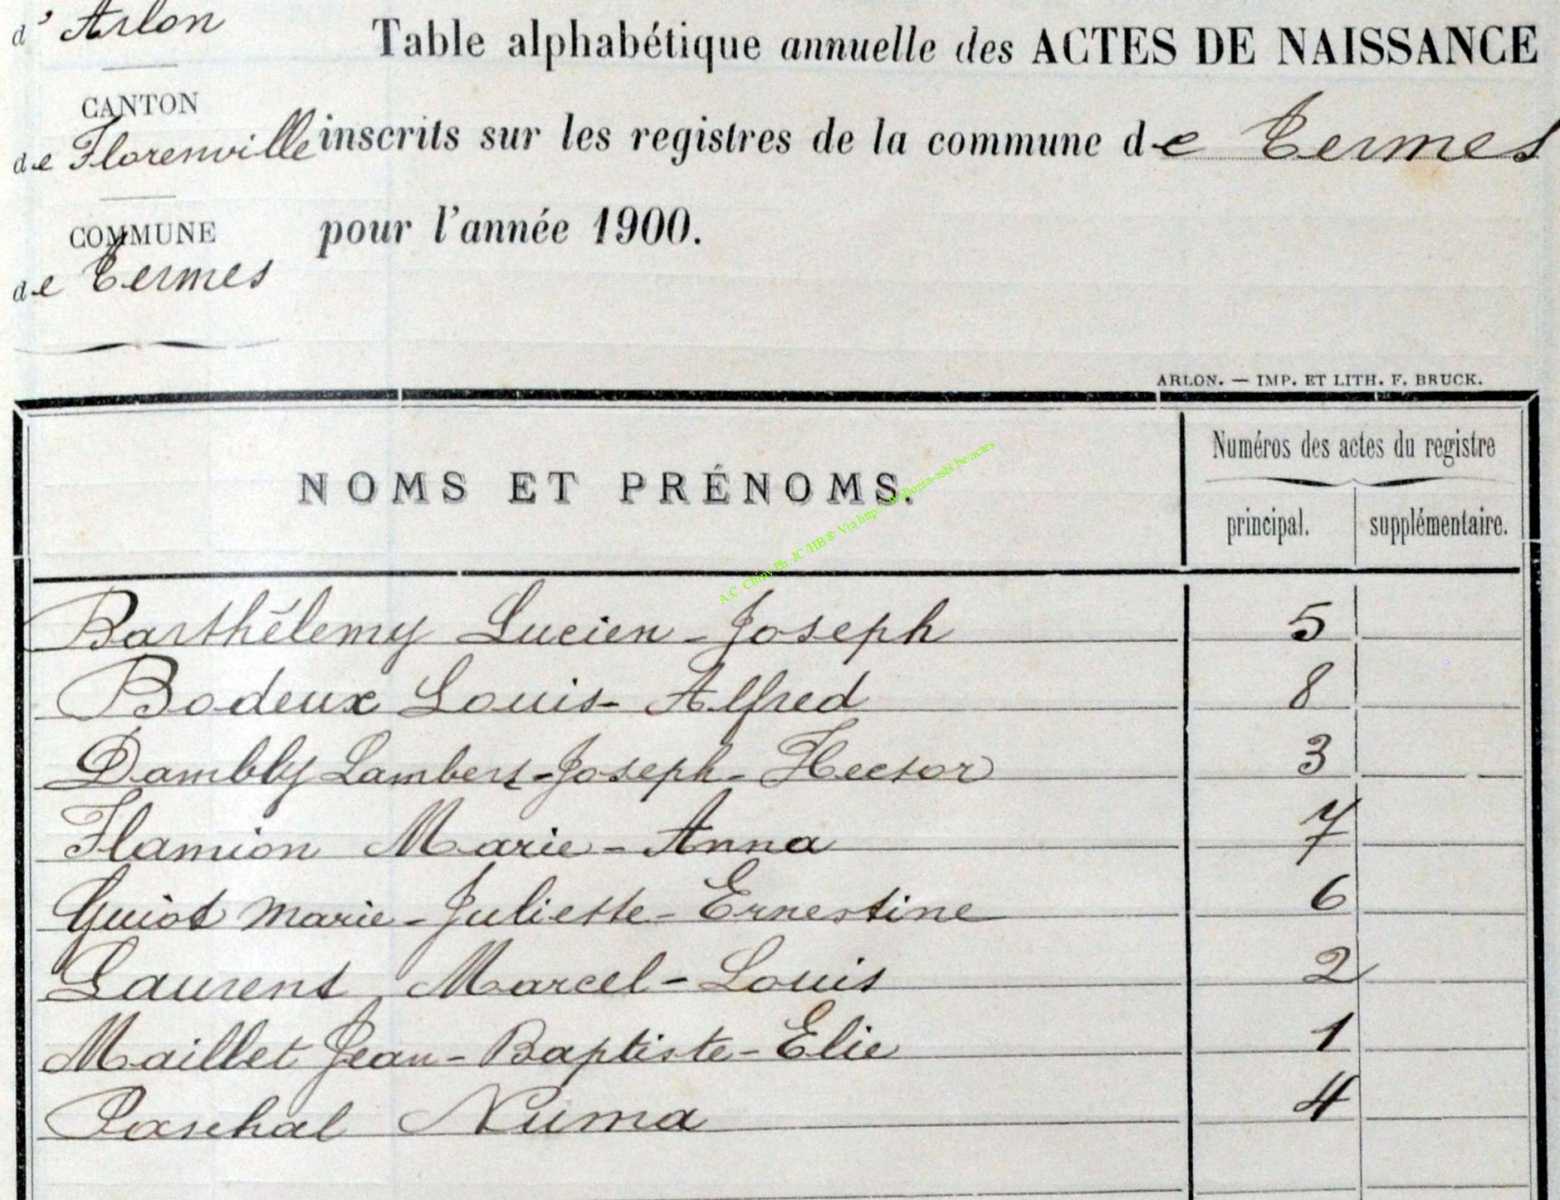 d'Arlon
CANTON
de Florenville
COMMUNE
de Termes
Table alphabétique annuelle des ACTES DE NAISSANCE
inscrits sur les registres de la commune de Termes
pour l'année 1900.
ARLON. — IMP. ET LITH. F. BRUCK.
NOMS ET PRÉNOMS.
Numéros des actes du registre
principal. supplémentaire.
Barthélemy Lucien-Joseph 5
Bodeux Louis-Alfred 8
Dambly Lambert-Joseph-Hector 3
Flamion Marie-Anna 7
Guiot Marie-Juliette-Ernestine 6
Laurent Marcel-Louis 2
Maillet Jean-Baptiste-Elie 1
Paschal Numa 4